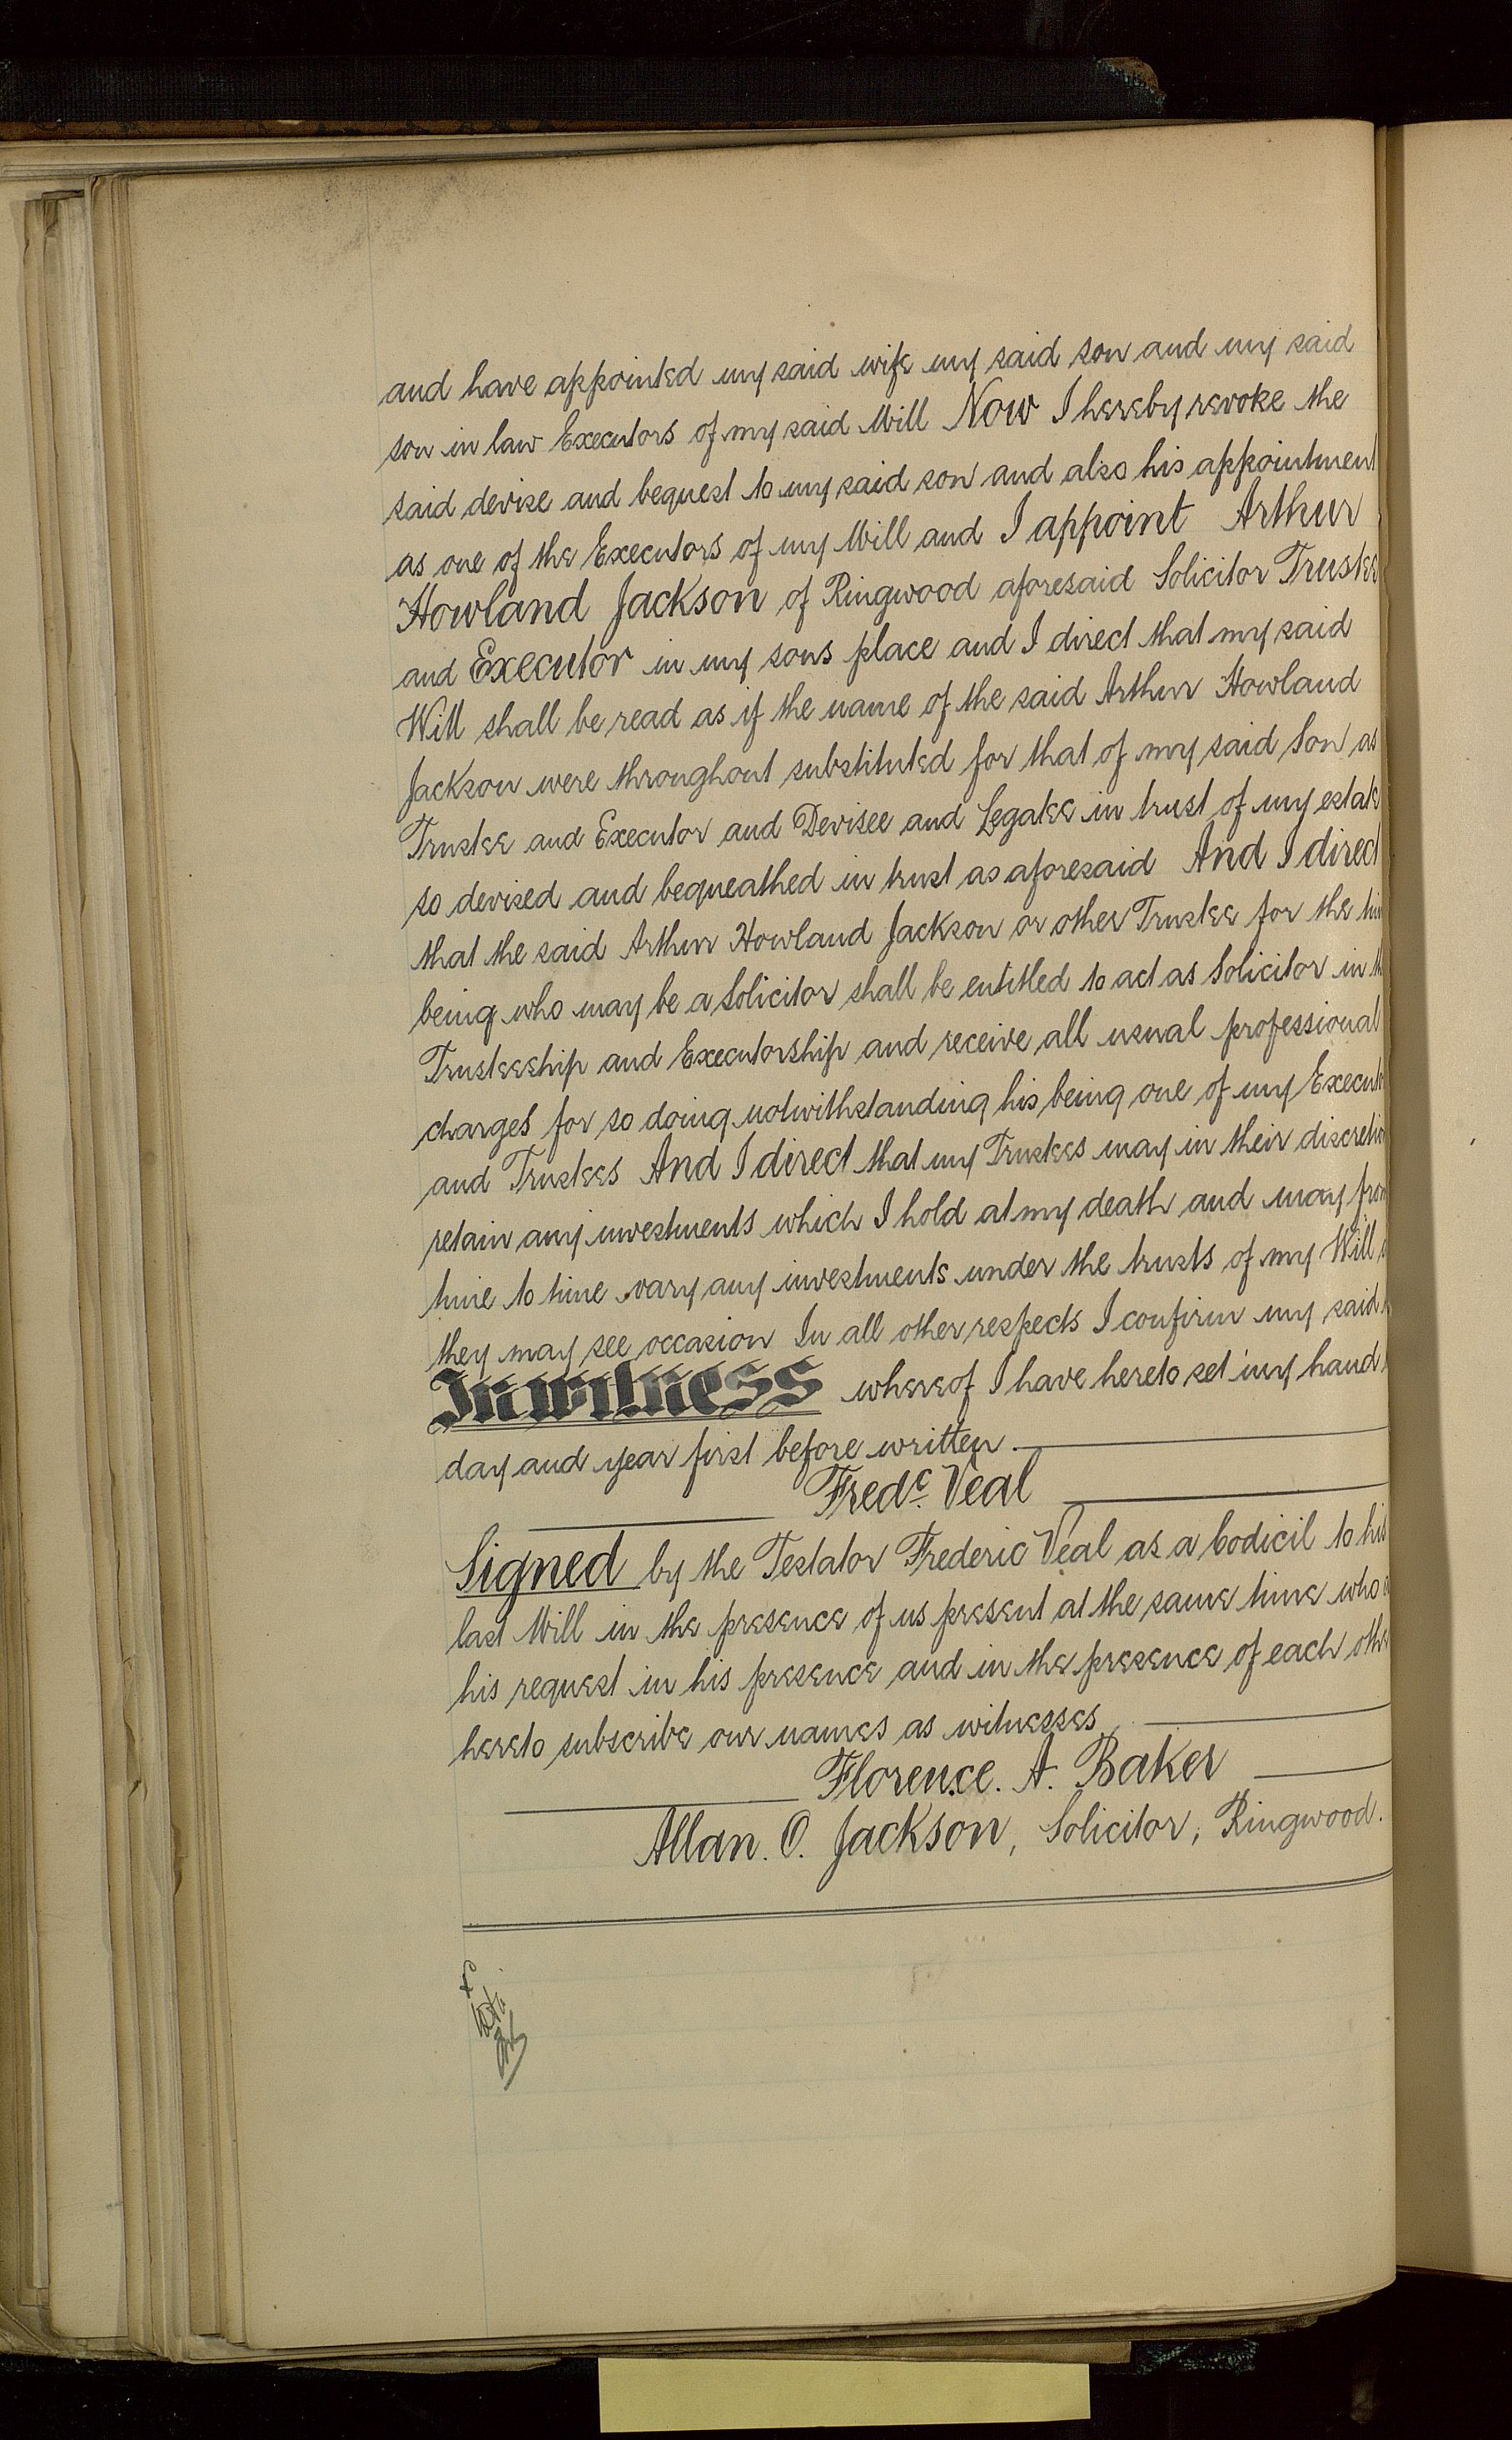 and have appointed my said wife my said son and my said
son in law Executors of my said Will Now I hereby revoke the
said devise and bequest to my said son and also his appointment
as one of the Executors of my Will and I appoint Arthur
Howland Jackson of Ringwood aforesaid Solicitor Trustee
and Executor in my sons place and I direct that my said
Will shall be read as if the name of the said Arthur Howland
Jackson were throughout substituted for that of my said Son as
Trustee and Executor and Devisee and Legatee in trust of my estate
so devised and bequeathed in trust as aforesaid And I direct
that the said Arthur Howland Jackson or other Trustee for the
being who may be a Solicitor shall be entitled to act as Solicitor in
Trusteeship and Executorship and receive all usual professional
charges for so doing notwithstanding his being one of my
and Trustees And I direct that my Trustees may in their
retain any investments which I hold at my death and may from
time to time vary any investments under the trusts of my Will
they may see occasion In all other respects I confirm my said
In witness whereof I have hereto set my hand
day and year first before written.
Fredc. Veal
Signed by the Testator Frederic Veal as a Codicil to his
last Will in the presence of us present at the same time who
his request in his presence and in the presence of each
hereto subscribe our names as witnesses
Florence. A. Baker
Allan. O. Jackson, Solicitor, Ringwood.